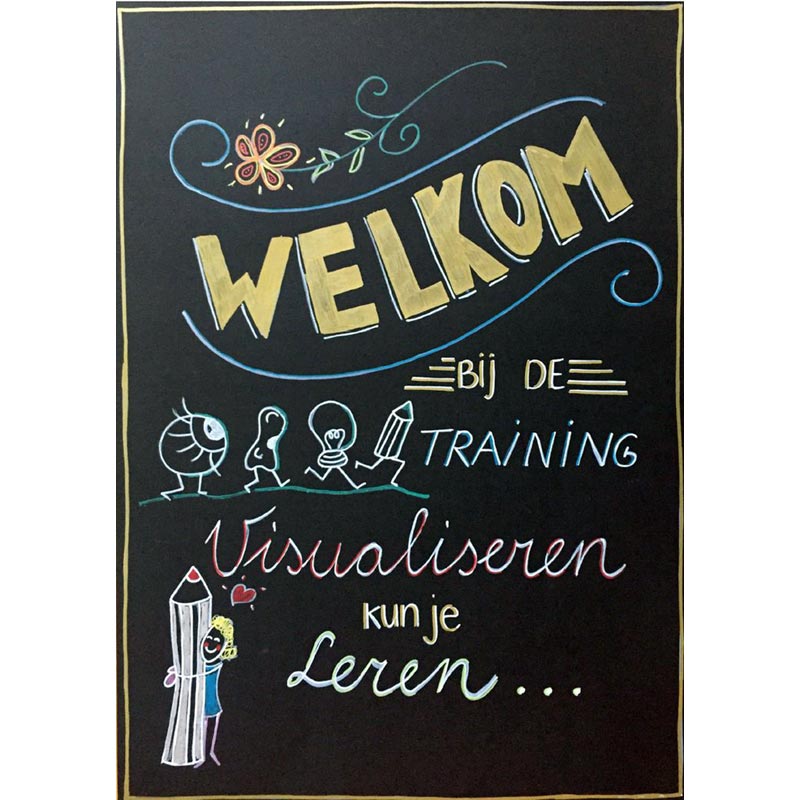 WELKOM
BIJ DE
TRAINING
Visualiseren
kun je
Leren...